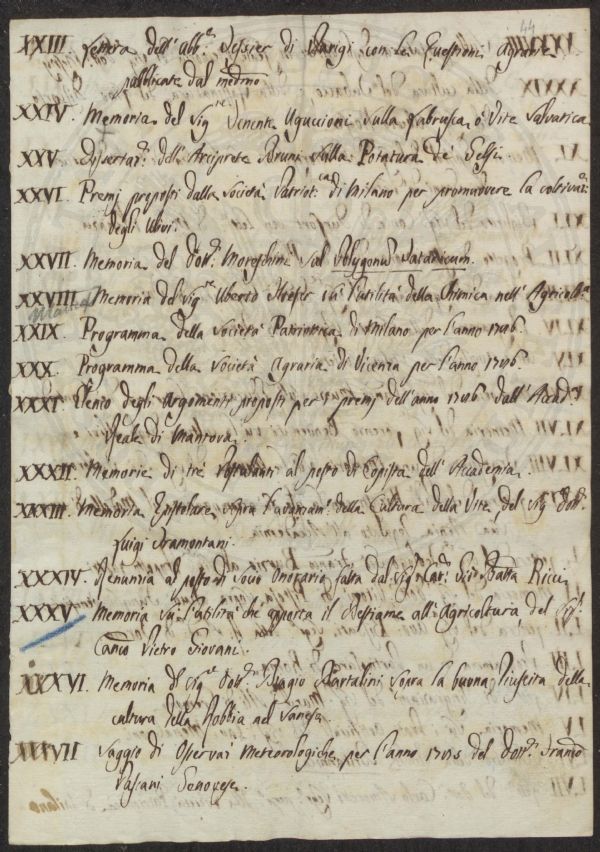 44
XXIII. Lettera dell' abb.e Tessier di Parigi con le Questioni agrarie
pubblicate dal med.mo
XXIV. Memoria del Sig.re Tenente Uguccioni sulla Labrusca, o Vite Salvatica
XXV. Dissertaz.e dell' Arciprete Bruni sulla Potatura de' Gelsi.
XXVI. Premj proposti dalla Società Patriot.ca di Milano per promuovere la coltivaz:
degli Ulivi.
XXVII. Memoria del Dott.r Moreschini sul Polygonus Tataricum.
XXVIII. Memoria del Sig.re Uberto Hoefer su l'utilità della Chimica nell' Agricolt.a
XXIX. Programma della Società Patriotica di Milano per l'anno 1786.
XXX. Programma della Società Agraria di Vicenza per l'anno 1786.
XXXI. Elenco degli argomenti proposti per i premj dell' anno 1786 dall' Accad.a
Reale di Mantova.
XXXII. Memorie di tre Postulanti al posto di Copista dell' Accademia.
XXXIII. Memoria Epistolare sopra della Cultura della Vite, del Sig.r Dott.r
Luigi Tramontani.
XXXIV. Renunzia al posto di Socio Onorario fatta dal Sig.r Cav.r Batta Ricci
XXXV. Memoria su l'utilità che apporta il Bestiame all' Agricoltura, del Sig.r
Can.co Pietro Giovani.
XXXVI. Memoria del Sig.re Dott.r Biagio Bartalini sopra la buona Riuscita della
cultura della Robbia nel Sanese.
XXXVII Saggio di Osservaz.i Meteorologiche per l'anno 1785 del Dott.r Franc.o
Passani Genovese.